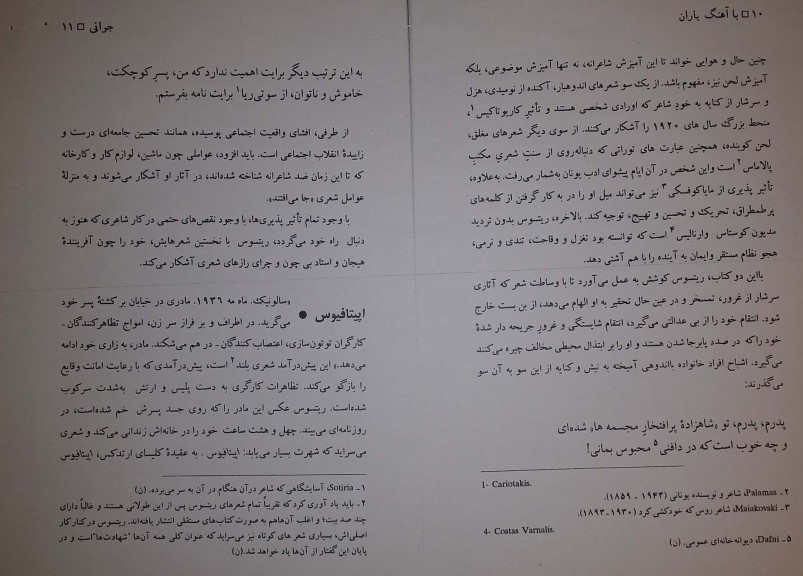 ۱۰ □ با آهنگ باران
چنین حال و هوایی خواند تا این آمیزش شاعرانه، نه تنها آمیزش موضوعی، بلکه
آمیزش لحن نیز، مفهوم باشد. از یک سو شعرهای اندوهبار، آکنده از نومیدی، هزل
و سرشار از کنایه به خود شاعر که اورادی شخصی هستند و تأثیر کاریوتاکیس۱،
منحط بزرگ سال های ۱۹۲۰ را آشکار می‌کنند. از سوی دیگر شعرهای مغلق،
لحن کوبنده، همچنین عبارت های توراتی که دنباله‌روی از سنتِ شعریِ مکتبِ
پالاماس۲ است واین شخص در آن ایام پیشوای ادب یونان به‌شمار می‌رفت. به‌علاوه،
تأثیر پذیری از مایاکوفسکی۳ نیز می‌تواند میل او را در به کار گرفتن از کلمه‌های
پرطمطراق، تحریک و تحسین و تهییج، توجیه کند. بالاخره، ریتسوس بدون تردید
مدیون کوستاس وارنالیس۴ است که توانسته بود تغزل و وقاحت، تندی و نرمی،
هجو نظام مستقر وایمان به آینده را با هم آشتی دهد.
بااین دو کتاب، ریتسوس کوشش به عمل می‌آورد تا با وساطت شعر که آثاری
سرشار از غرور، تمسخر و در عین حال تحقیر به او الهام می‌دهد، از بن بست خارج
شود. انتقام خود را از بی عدالتی می‌گیرد، انتقام شایستگی و غرورِ جریحه دار شدهٔ
خود را که در صدد پابرجا شدن هستند و او را بر ابتدال محیطی مخالف چیره می‌کنند
می‌گیرد. اشباح افراد خانواده بااندوهی آمیخته به نیش و کنایه از این سو به آن سو
می‌گذرند:
پدرم، پدرم، تو «شاهزادهٔ پرافتخارِ مجسمه ها» شده‌ای
و چه خوب است که در دافنی۵ محبوس بمانی!
1- Cariotakis.
۲ – Palamas، شاعر و نویسنده یونانی (۱۹۴۳ – ۱۸۵۹).
۳ – Maiakovski، شاعر روس که خودکشی کرد (۱۹۳۰-۱۸۹۳).
4- Costas Varnalis.
۵ – Dafni، دیوانه‌خانه‌ای عمومی. (ن)
جوانی □ ۱۱
به این ترتیب دیگر برایت اهمیت ندارد که من، پسرِ کوچکت،
خاموش و ناتوان، از سوتی‌ریا۱ برایت نامه بفرستم.
از طرفی، افشای واقعیت اجتماعی پوسیده، همانند تحسین جامعه‌ای درست و
زاییدهٔ انقلاب اجتماعی است. باید افزود، عواملی چون ماشین، لوازم کار و کارخانه
که تا این زمان ضد شاعرانه شناخته شده‌اند، در آثار او آشکار می‌شوند و به منزلهٔ
عوامل شعری «جا می‌افتند».
با وجود تمام تأثیر پذیری‌ها، با وجود نقص‌های حتمی در کار شاعری که هنوز به
دنبال راه خود می‌گردد، ریتسوس با نخستین شعرهایش، خود را چون آفرینندهٔ
هیجان و استاد بی چون و چرای رازهای شعری آشکار می‌کند.
اپیتافیوس ●
«سالونیک. ماه مه ۱۹۳۶. مادری در خیابان بر کشتهٔ پسر خود
می‌گرید. در اطراف و بر فراز سر زن، امواج تظاهرکنندگان –
کارگران توتون‌سازی، اعتصاب کنندگان – در هم می‌شکند. مادر، به زاری خود ادامه
می‌دهد.» این پیش‌درآمد شعری بلند۲ است، پیش‌درآمدی که با رعایت امانت وقایع
را بازگو می‌کند. تظاهرات کارگری به دست پلیس و ارتش به‌شدت سرکوب
شده‌است. ریتسوس عکس این مادر را که روی جسد پسرش خم شده‌است، در
روزنامه‌ای می‌بیند. چهل و هشت ساعت خود را در خانه‌اش زندانی می‌کند و شعری
می‌سراید که شهرت بسیار می‌یابد: اپیتافیوس . به عقیدهٔ کلیسای ارتدکس، اپیتافیوس
۱ – Sotiria، آسایشگاهی که شاعر درآن هنگام در آن به سر می‌برده. (ن)
۲ – باید یاد آوری کرد که تقریباً تمام شعرهای ریتسوس پس از این طولانی هستند و غالباً دارای
چند صد بیت؛ و اغلب آن‌هاهم به صورت کتاب‌های مستقلی انتشار یافته‌اند. ریتسوس در کنار کار
اصلی‌اش، بسیاری شعر های کوتاه نیز می‌سراید که عنوان کلی همه آن‌ها «شهادت‌ها»است و در
پایان این گفتار از آن‌ها یاد خواهد شد.(ن)